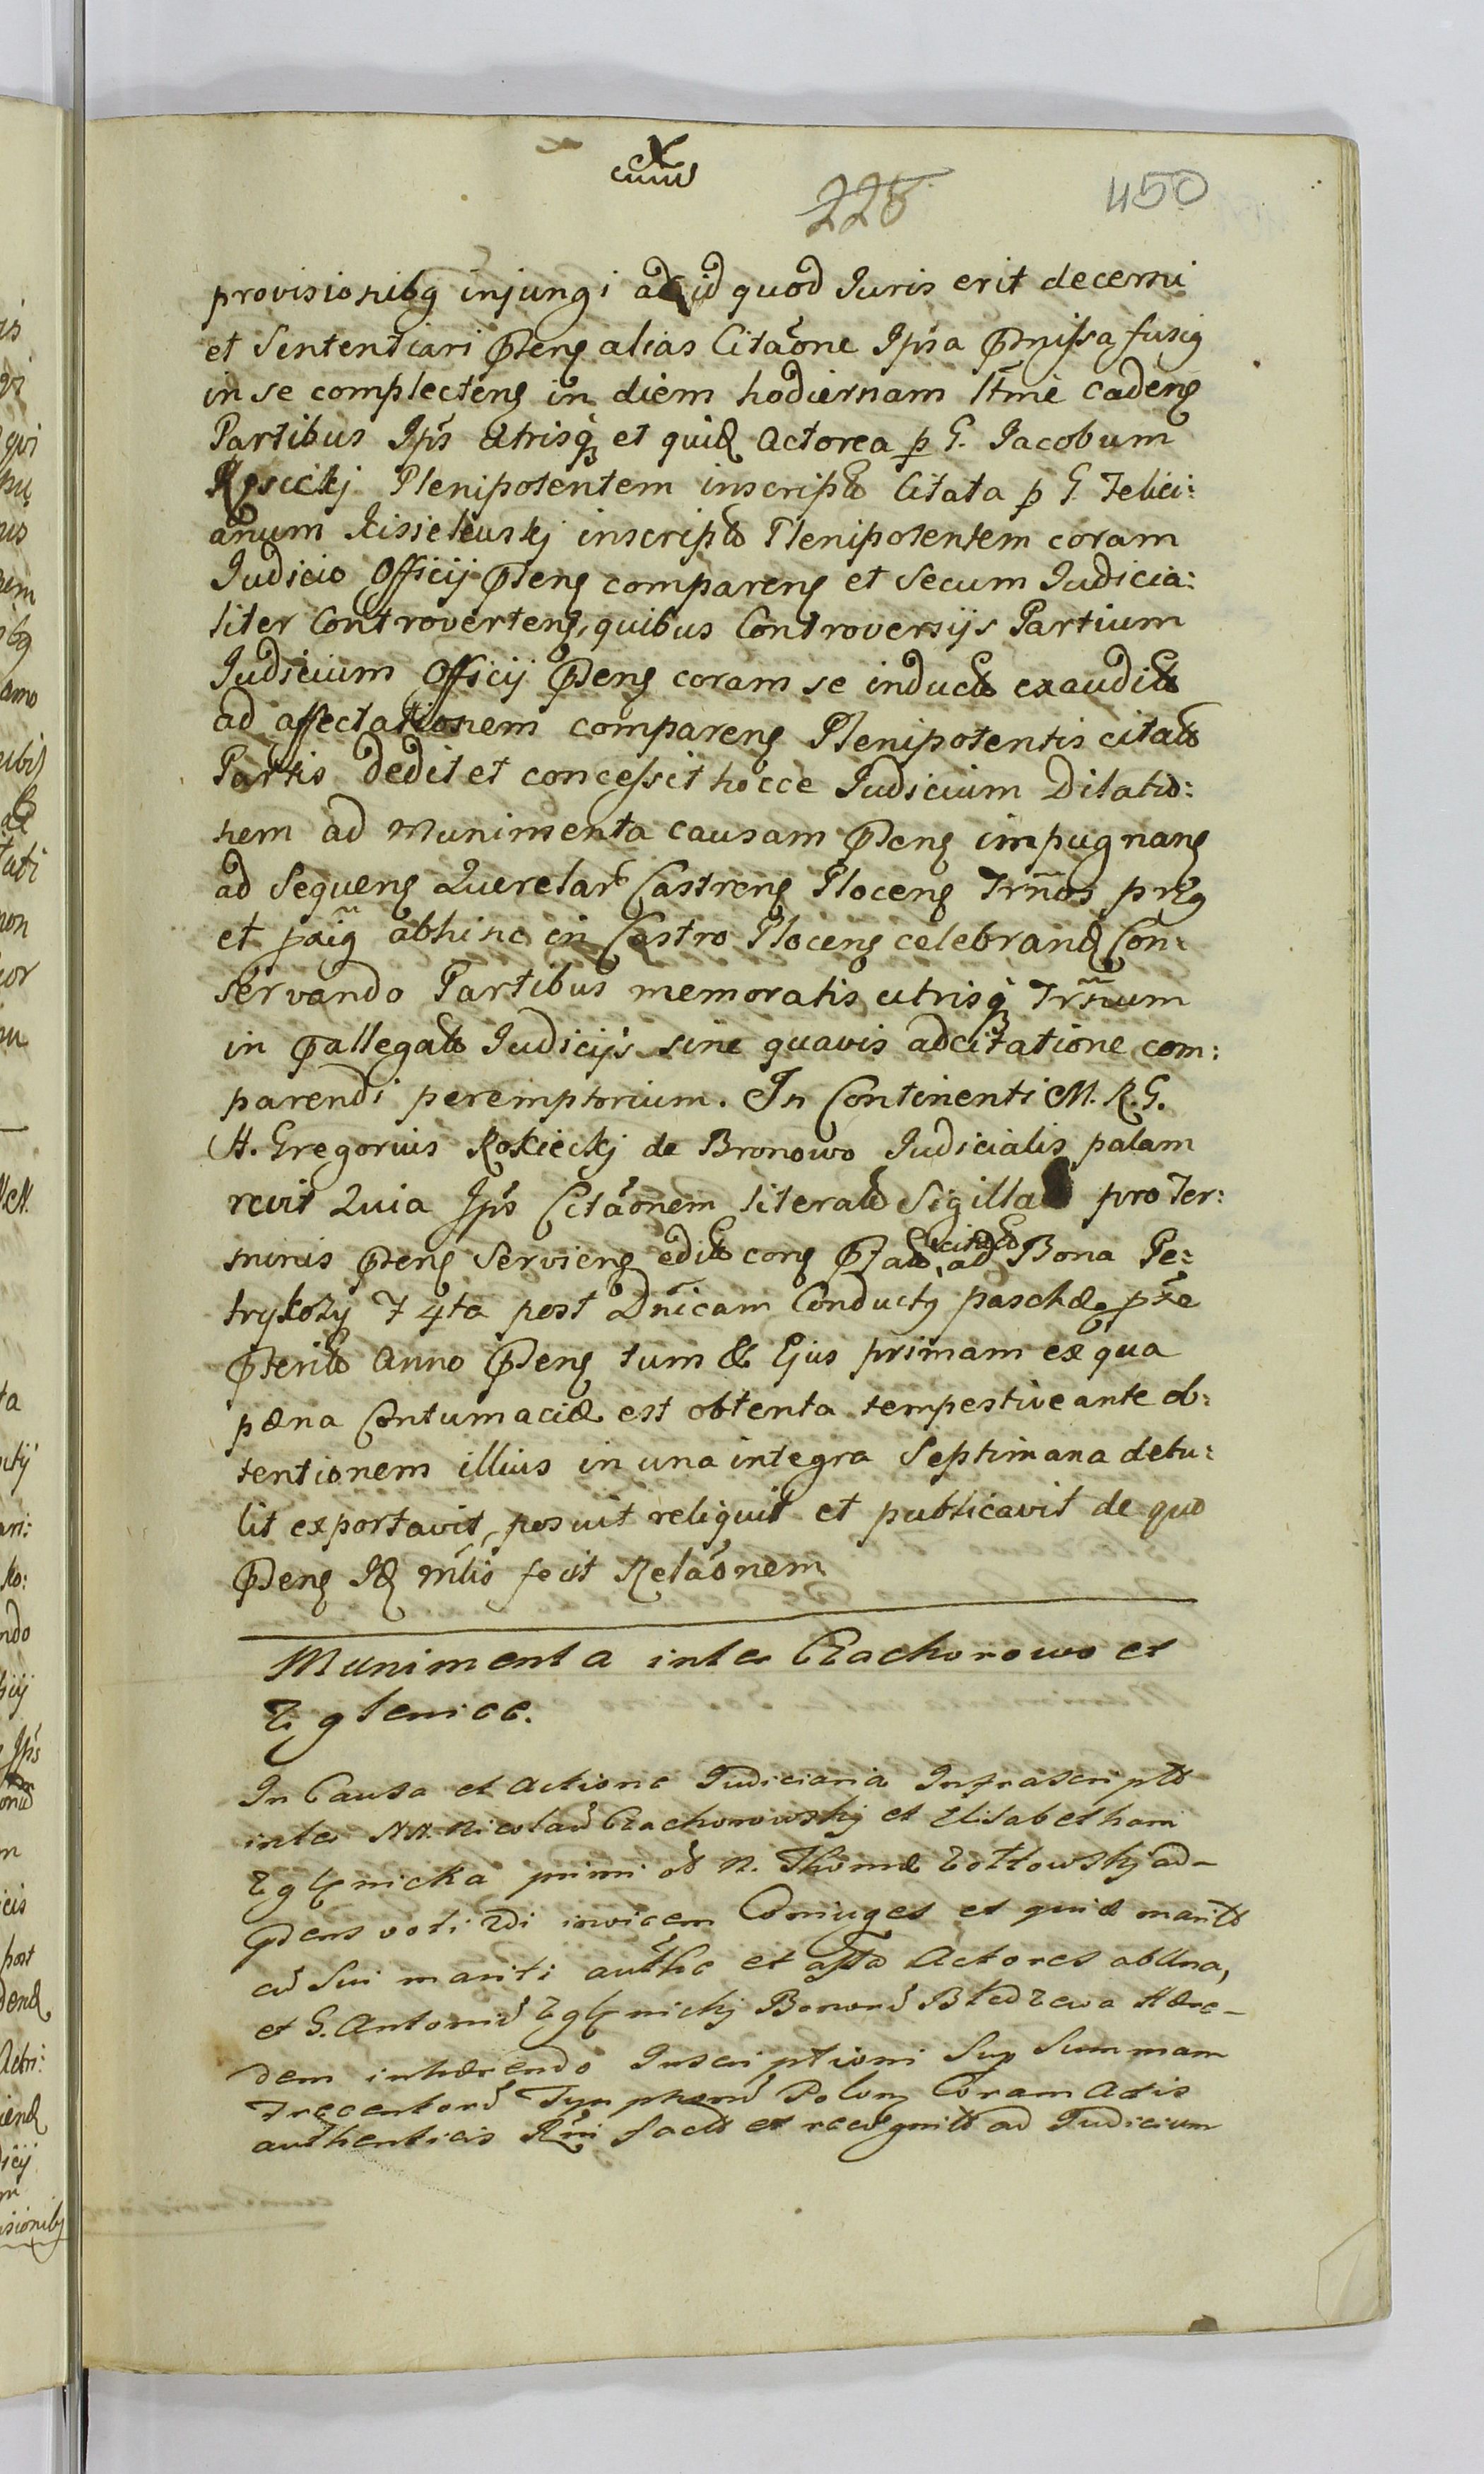 225 450
provisionibq injungi ad id quod Juris erit decerni
et Sententiari Pdenς alias Citãone Ipsa Pmissa fusiq
in se complectenς in diem hodiernam ltme cadenς
Partibus Ips utrisq et quid Actorea p G. Jacobum
Rosickj Plenipotentem inscript Citata p G Felici:
anum Kissielewskj inscript Plenipotentem coram
Judicio Officij Pdenς comparenς et Secum Judicia:
liter Controvertenς, quibus Controversijs Partium
Judicium Officij Pdenς coram se induct exaudit
ad affectationem comparenς Plenipotentis citat
Partis dedit et concessit hocce Judicium Dilatio:
nem ad Munimenta causam Pdenς impugnanς
ad Sequenς Querelar Castrenς Plocenς Trnos prõς
et paiς abhinc in Castro Plocenς celebrand Con:
servando Partibus memoratis utrisq Trnum
in Pallegat Judicijs sine quavis adcitatione com:
parendi peremptorium. In Continenti M. R. G.
H. Gregorius Rokickj de Bronowo Judicialis palam
revit Quia Ips Citãonem literat Sigillat pro Ter:
minis Pdenς Servienς edit conς Ptat, citat ad Bona Pe:
trykozy F 4ta post Dnicam Conducty paschæ pxe
Pterit Anno Pdenς tum & Ejus primam ex qua
pæna Contumaciæ est obtenta tempestive ante ob:
tentionem illius in una integra Septimana detu:
lit exportavit, posuit reliquit et publicavit de quo
Pdenς Id mlis fecit Relãonem
Munimenta inter Czachorowo et
Zglenice.
In Causa et Actione Judiciaria Infrascript
inter NN. Nicolaū Czachorowskj et Elisabetham
Zglenicka primi od N. Thomæ Zołtowskj ad-
pdens voti 2di invicem Coniuges et quid marit
cū sui mariti authe et assta Actores ab Una,
et G. Antoniū Zglenickj Bonorū Bledzewa Hære-
dem inhærendo Inscriptioni Sup Summam
Trecentorū Tympherū Polonς Coram Actis
authenticis Rni fact et recognit ad Judicium